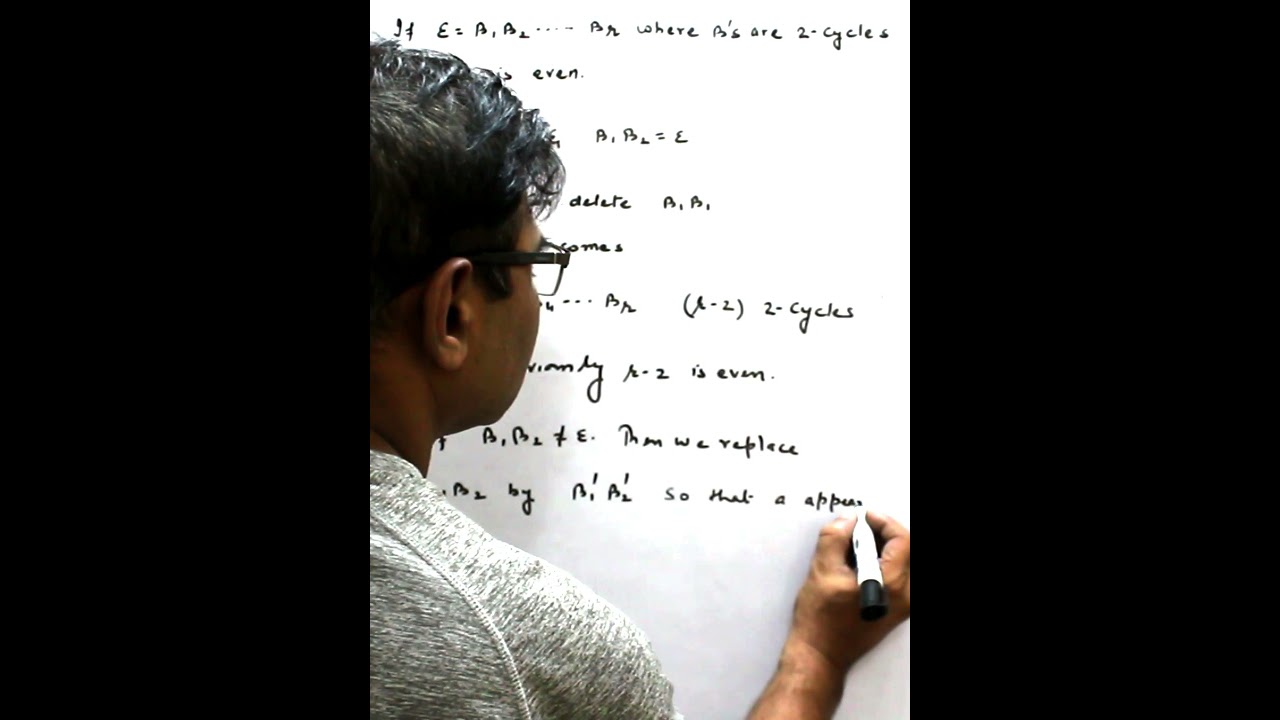 If ε = β₁ β₂ ..... βr where β's are 2-cycles
is even.
β₁ β₂ = ε
delete β₁ β₁
comes
... βr (r-2) 2-cycles
r-2 is even.
β₁ β₂ ≠ ε. Then we replace
β₂ by β₁' β₂' so that a appear